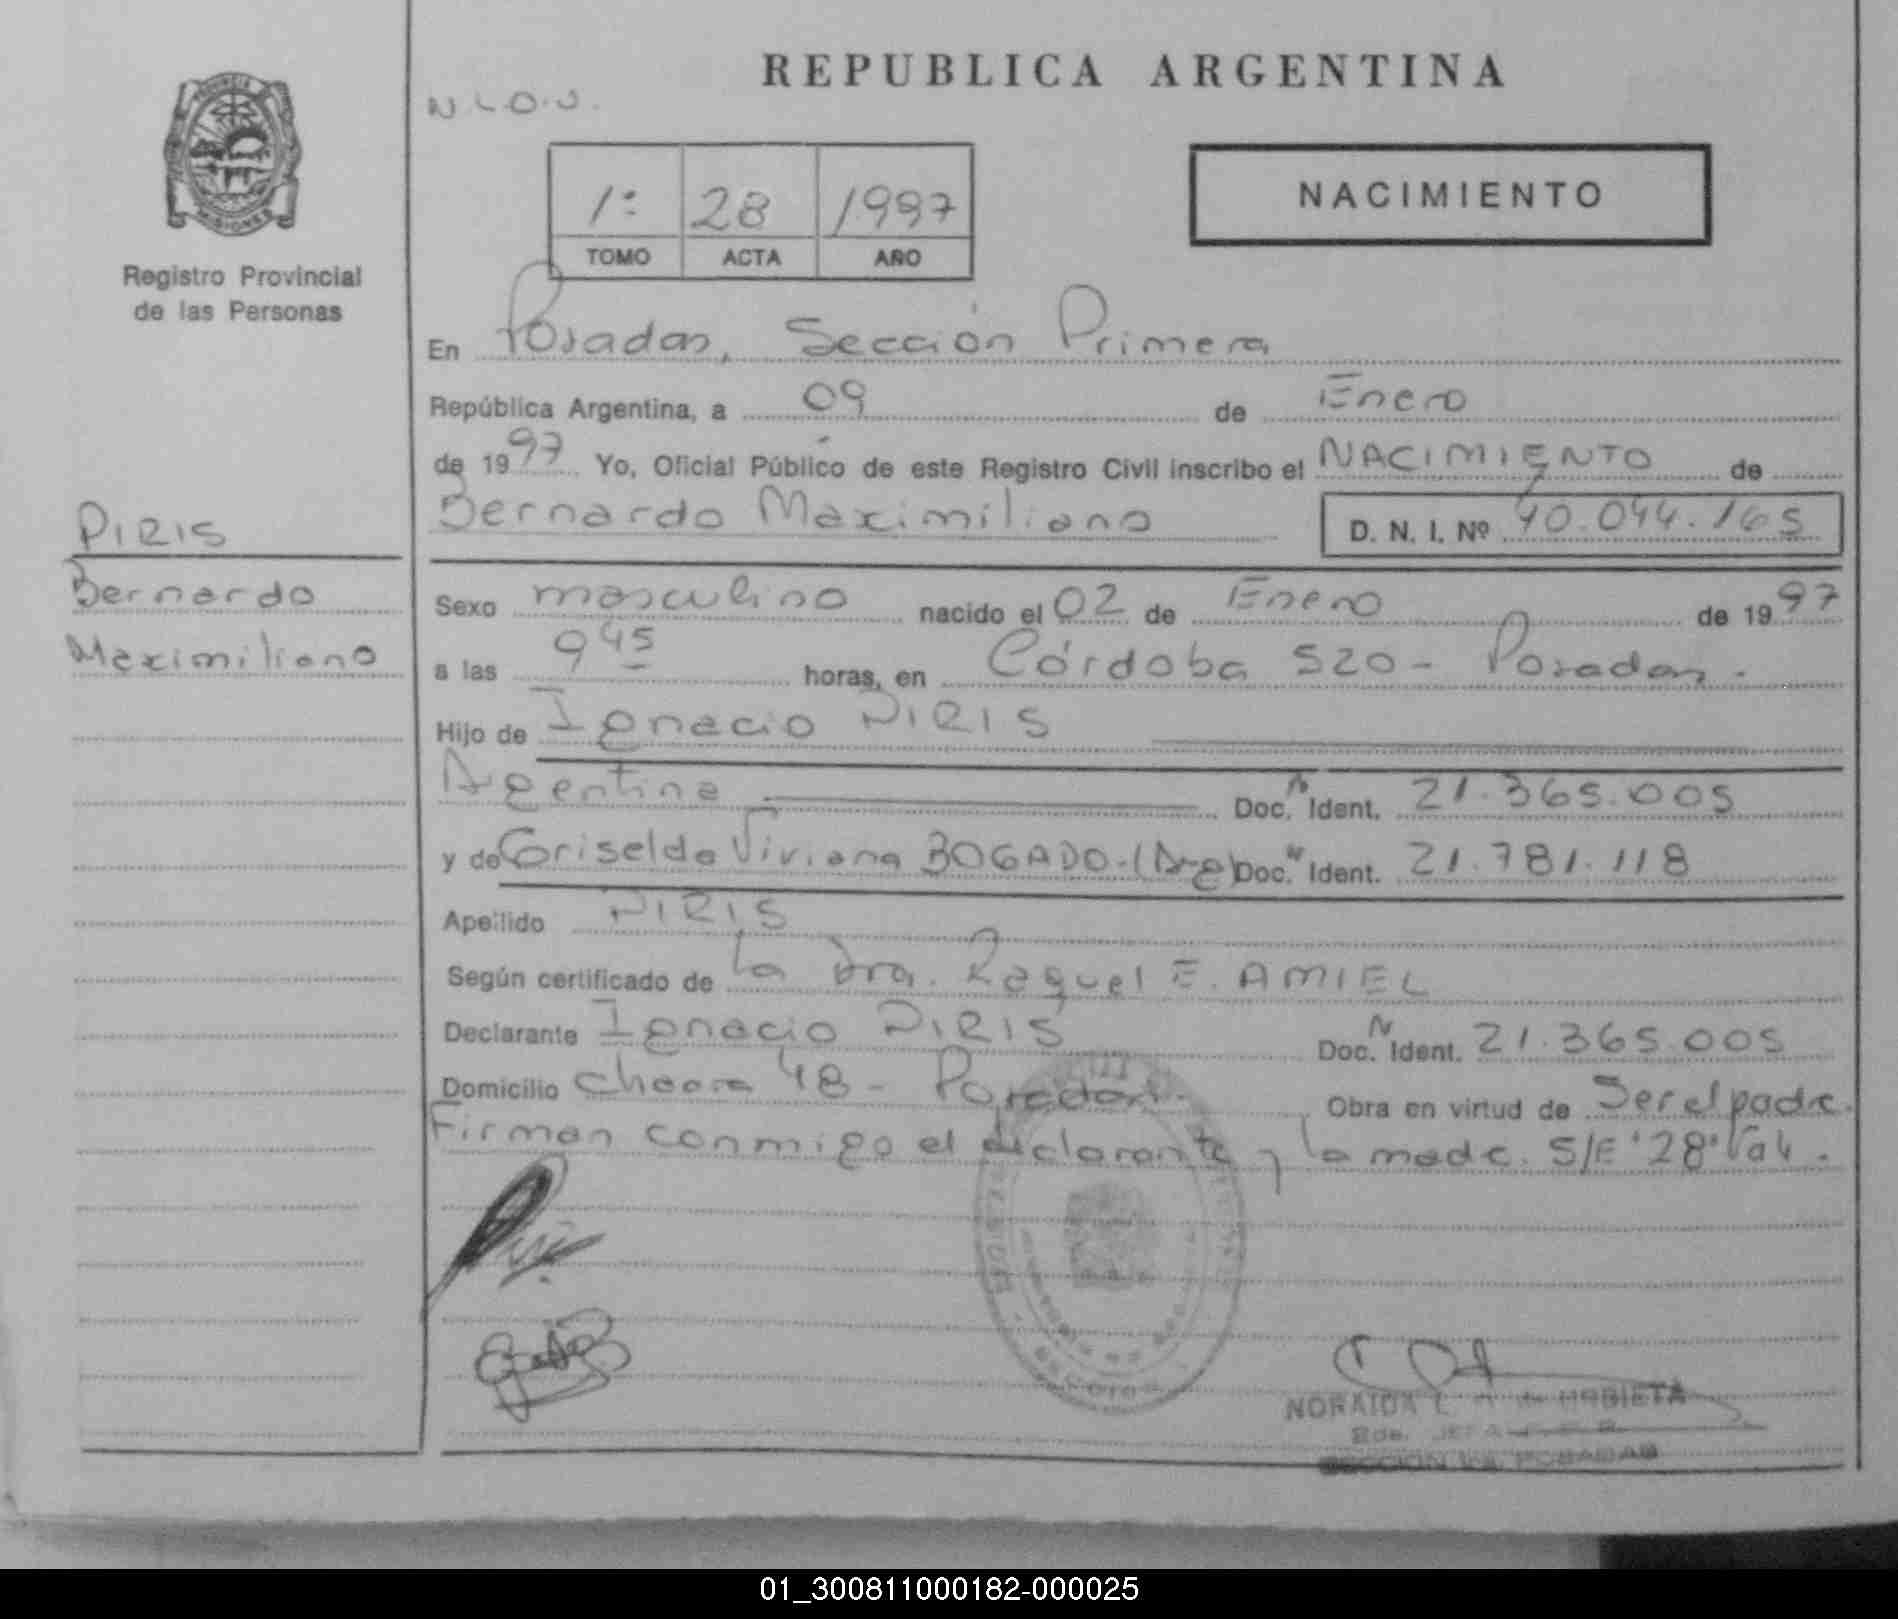 REPUBLICA ARGENTINA
N.L.O.U.
PROVINCIA
MISIONES
Registro Provincial
de las Personas
1º 28 1997
TOMO ACTA AÑO
NACIMIENTO
En Posadas, Sección Primera
República Argentina, a 09 de Enero
de 1997 Yo, Oficial Público de este Registro Civil inscribo el NACIMIENTO de
Bernardo Maximiliano D. N. I. Nº 40.044.165
PIRIS
Bernardo
Maximiliano
Sexo masculino nacido el 02 de Enero de 1997
a las 9 45 horas, en Córdoba 520 - Posadas.
Hijo de Ignacio PIRIS
Argentina Doc. N Ident. 21.365.005
y de Griselda Viviana BOGADO-(Arg) Doc. N Ident. 21.781.118
Apellido PIRIS
Según certificado de la Dra. Raquel E. AMIEL
Declarante Ignacio PIRIS Doc. N Ident. 21.365.005
Domicilio Chacra 48 - Posadas. Obra en virtud de Ser el padre.
Firman conmigo el declarante y la madre. S/E "28" Vale.
NORAIDA L.
SECCION 1ra. POSADAS
01_300811000182-000025